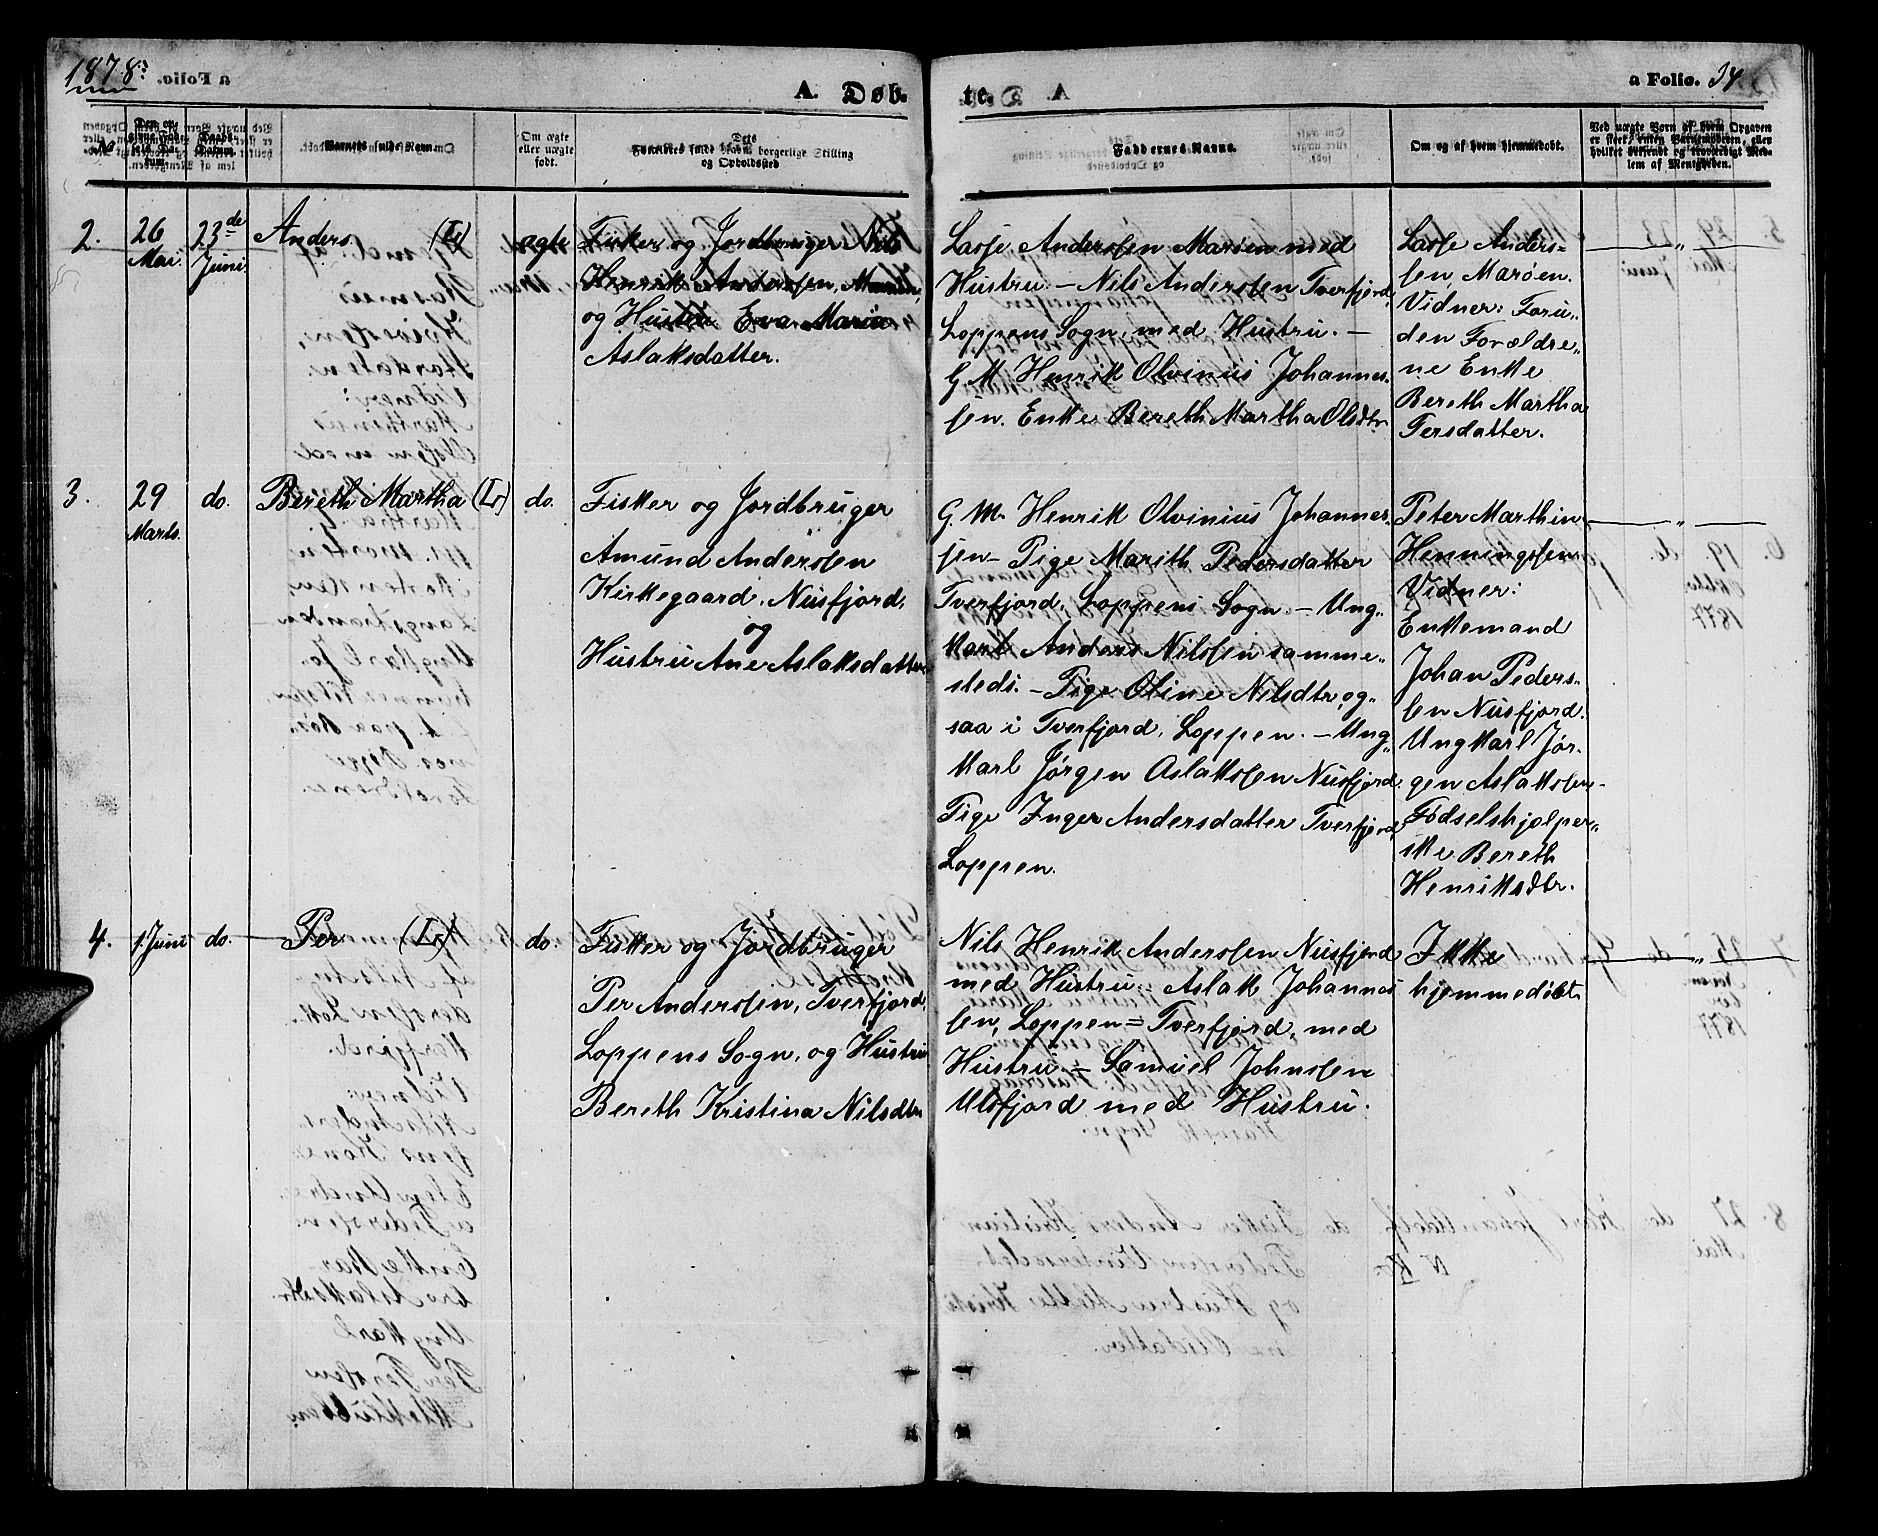 1878.
a Folio.
A. Døb-
te.
a Folio. 34.
No
Daabs-
Datum.
Barnets fulde Navn.
Om ægte
eller uægte
født.
Dets
Forældres fulde Navn, borgerlige Stilling
og Opholdssted
Faddernes Navne.
Om og af hvem hjemmedøbt.
Ved uægte Børn af hvem Opgaven
er skeet, enten Barnemoderen, eller
hvilket bekjendt og troværdigt Med-
lem af Menigheden.
2.
26
Mai.
23de
Juni
Anders. (L)
ægte
Fisker og Jordbruger Nils
Henrik Andersen,
og Hustru Eva Maria
Aslaksdatter.
Lasse Andersen Marøen med
Hustru. — Nils Andersen Tverfjord,
Loppens Sogn, med Hustru. —
G. M. Henrik Olvinius Johannes-
sen. Enke Bereth Martha Olsdtr
Lasse Anders-
sen, Marøen.
Vidner: Foru-
den Forældre-
ne Enke
Bereth Martha
Persdatter.
3.
29
Marts.
do.
Bereth Martha (L)
do.
Fisker og Jordbruger
Amund Andersen
Kirkegaard, Nusfjord,
og
Hustru Ane Aslaksdatter
G. M. Henrik Olvinius Johannes-
sen — Pige Marith Pedersdatter
Tverfjord, Loppens Sogn. — Ung-
karl Anders Nilssen samme-
steds. — Pige Oline Nilsdtr, og-
saa i Tverfjord, Loppen. — Ung-
karl Jørgen Aslaksen Nusfjord.
Pige Inger Andersdatter Tverfjord,
Loppen.
Peter Marthin
Henningsen
Vidner:
Enkemand
Johan Peders-
sen Nusfjord.
Ungkarl Jør-
gen Aslaksen
Fødselshjælper-
ske Bereth
Henriksdtr.
4.
1. Juni
do.
Per (L)
do.
Fisker og Jordbruger
Per Andersen, Tverfjord,
Loppens Sogn, og Hustru
Bereth Kristina Nilsdtr
Nils Henrik Andersen Nusfjord
med Hustru. Aslak Johannes-
sen, Loppen = Tverfjord, med
Hustru. — Samuel Johnsen
Ulsfjord med Hustru.
Ikke
hjemmedøbt